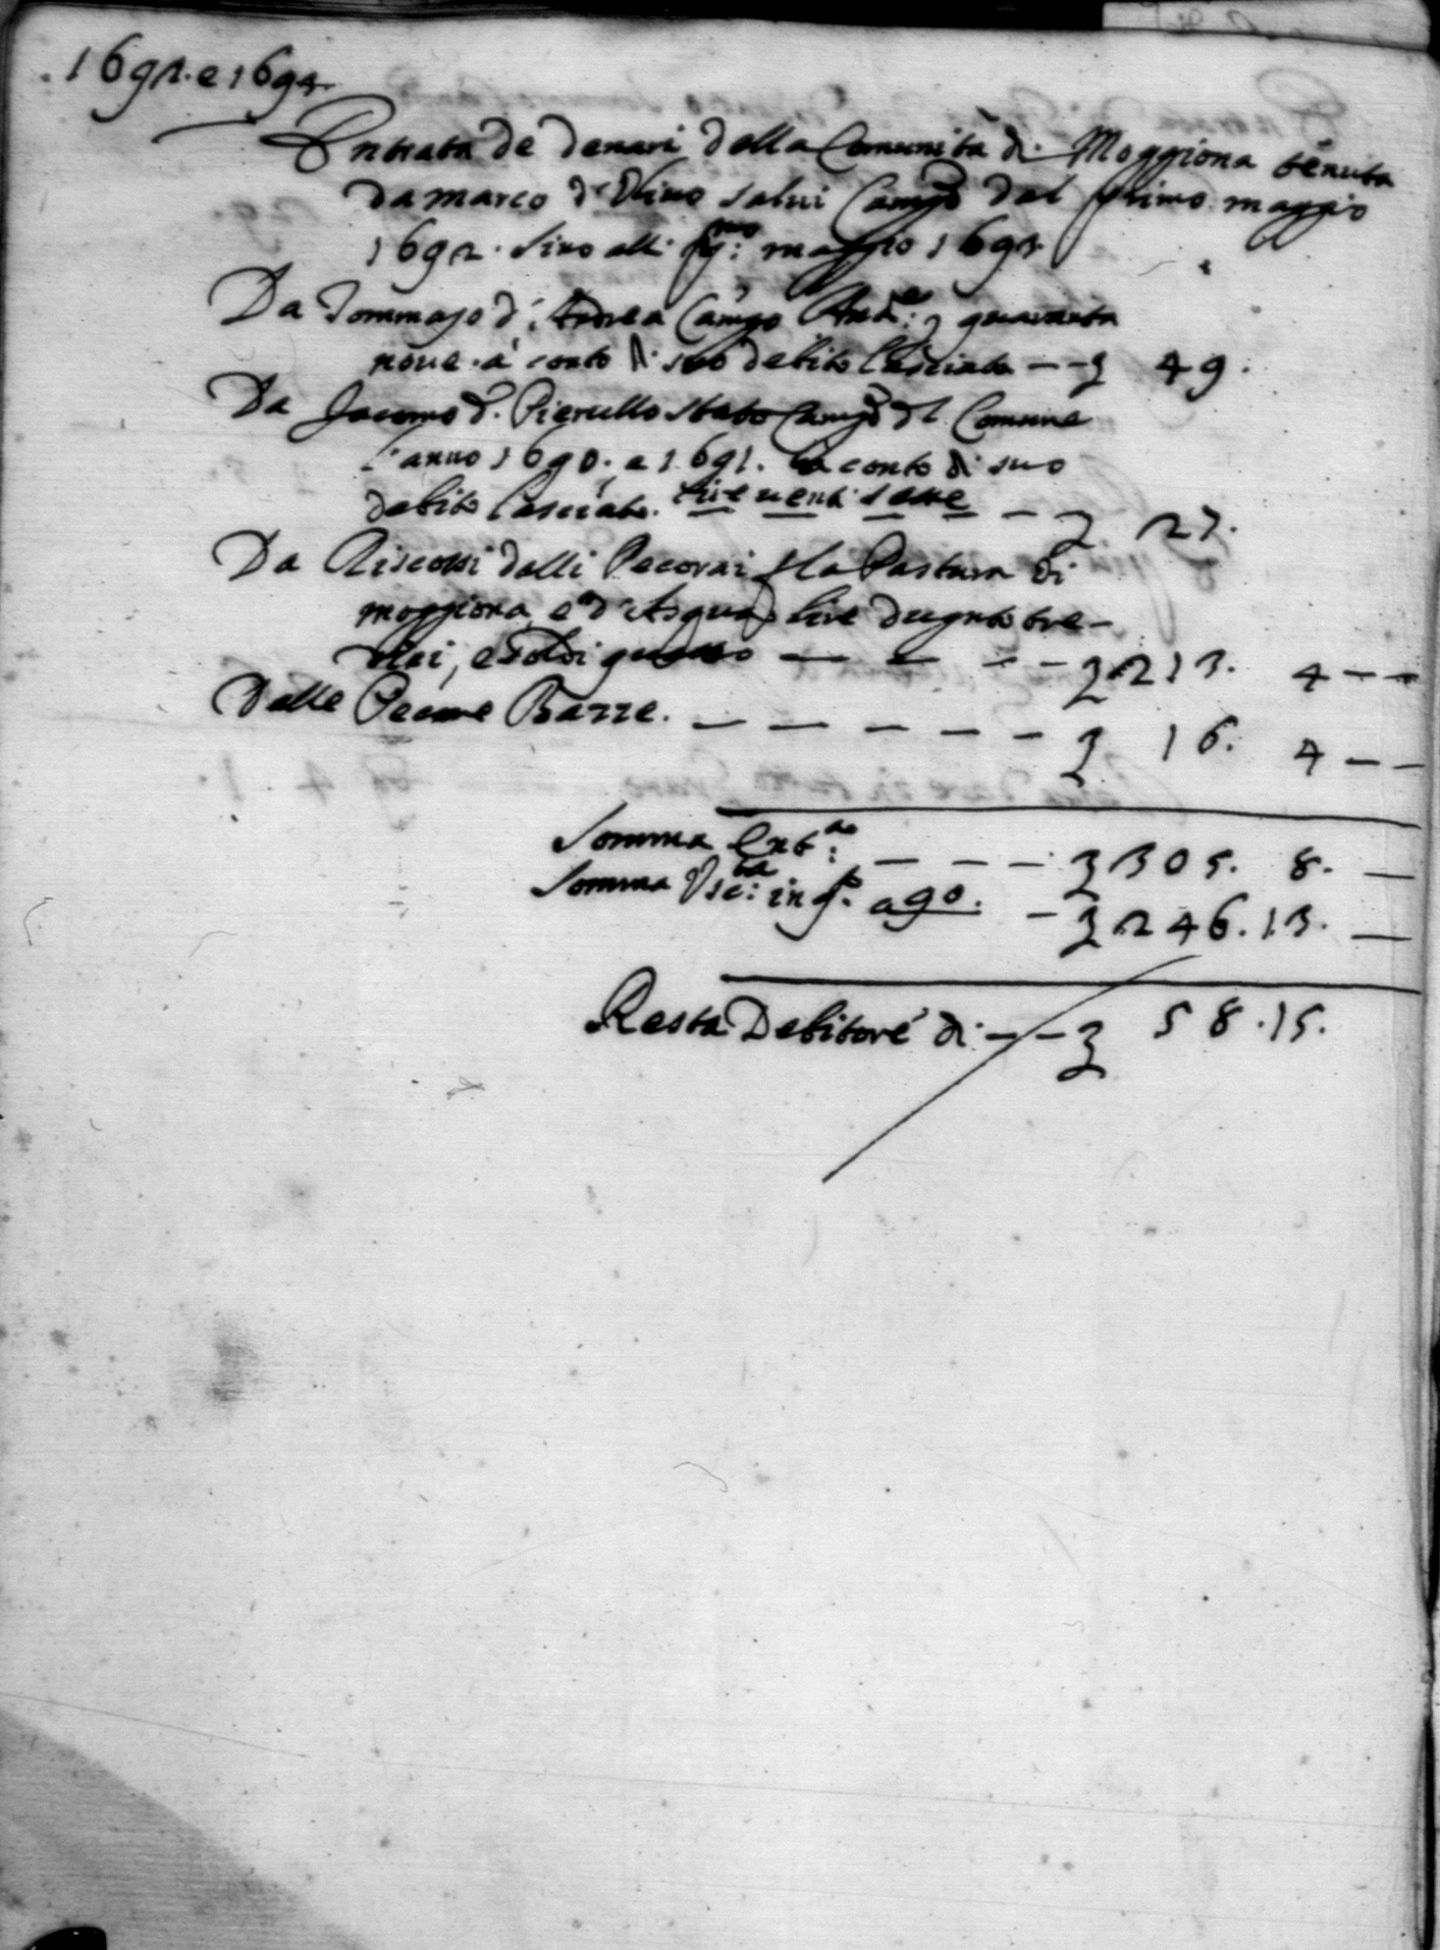 1692. e 1693.
Entrata de denari della Comunità di Moggiona tenuta
da marco d'Olivo salvi Camgo dal primo maggio
1692. sino alli pmo: maggio 1693
Da Tommaso d'Andrea Camgo Ante: quaranta
nove à conto di suo debito lasciato -- 49.
Da Jacomo d. Pierullo stato Camgo del Comune
l'anno 1690. e 1691. a conto di suo
debito lasciato. lire venti sette --- 27.
Da Riscossi dalli Pecorai p la Pastura di
moggiona, e d'Asqua lire dugnto tre-
dici, e soldi quatro --- 213. 4 --
Dalle Pecore Bazze. --- 16. 4 --
Somma Entta: --- 305. 8. -
Somma Uscta: in qo. a 90. - 246. 13. -
Resta Debitore di -- 58. 15.